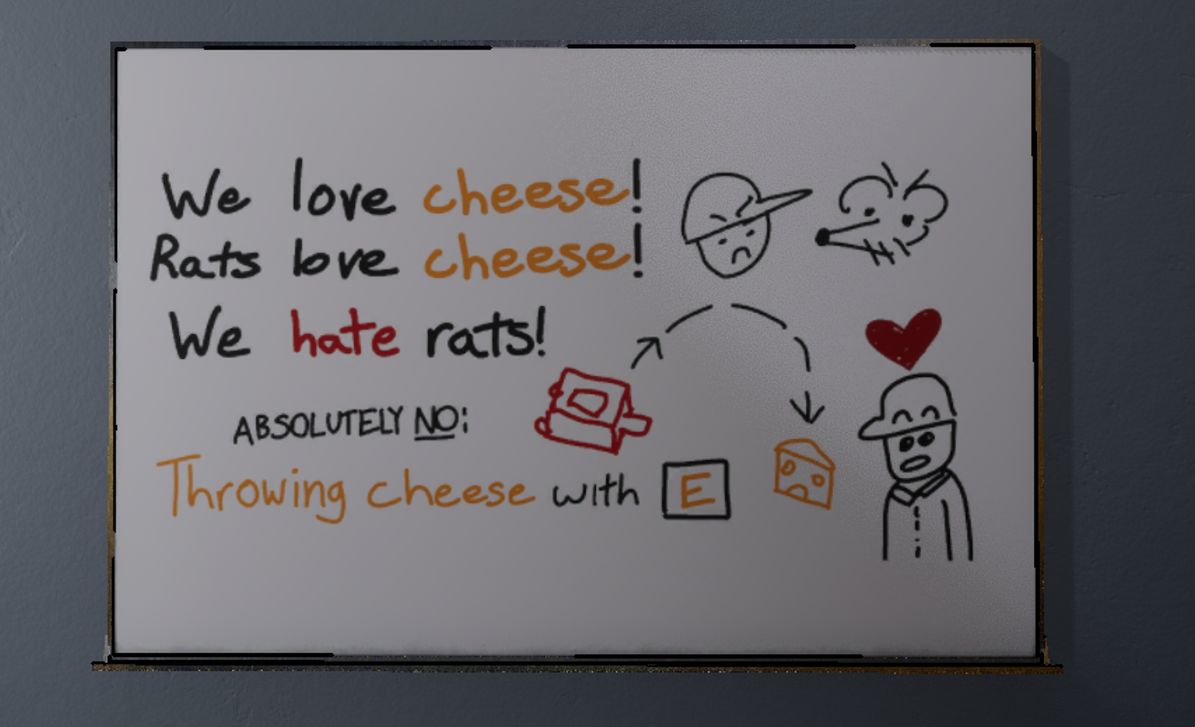 We love cheese!
Rats love cheese!
We hate rats!
ABSOLUTELY NO:
Throwing cheese with E